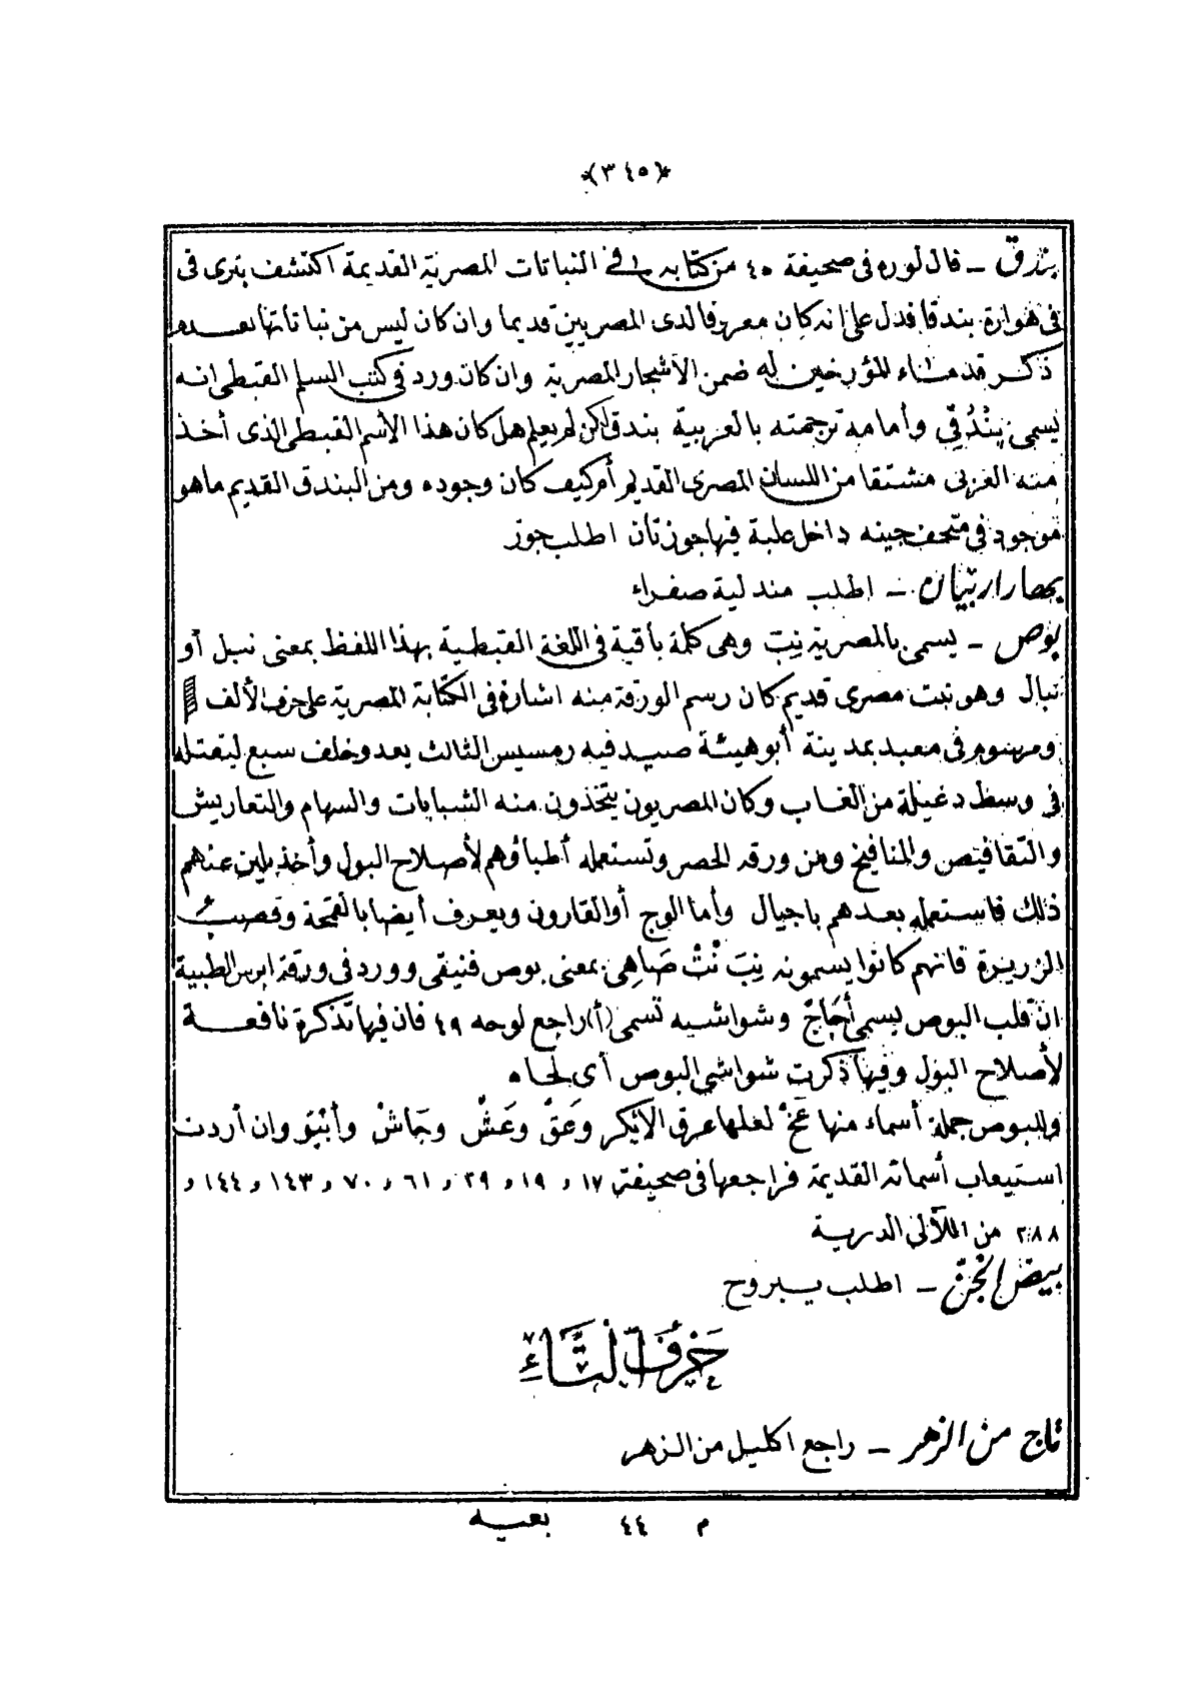 ﴿٣٤٥﴾
بندق – قال لوره فى صحيفة ٤٥ من كتابه فى النباتات المصرية القديمة اكتشف بترى فى
فى هوارة بندقا فدل على انه كان معروفا لدى المصريين قديما وان كان ليس من نباتاتها بعد
ذكر قدماء المؤرخين له ضمن الأشجار المصرية وان كان ورد فى كتب السلم القبطى انه
يسمى بِنْدُقِّى وأمامه ترجمته بالعربية بندق لكن لم يعلم هل كان هذا الأسم القبطى الذى أخذ
منه العربى مشتقا من اللسان المصرى القديم أم كيف كان وجوده ومن البندق القديم ماهو
موجود فى متحف جيزه داخل علبة فيها جوزتان اطلب جوز
بهار اربيان – اطلب مندلية صفراء
بوص – يسمى بالمصرية نِبِ وهى كلمة باقية فى اللغة القبطية بهذا اللفظ بمعنى نبل أو
نبال وهو نبت مصرى قديم كان رسم الورقة منه اشارة فى الكتابة المصرية على حرف الألف
ومرسوم فى معبد بمدينة أبو هيثة صيد فيه رمسيس الثالث يعدو خلف سبع ليقتله
فى وسط دغيلة من الغاب وكان المصريون يتخذون منه الشبابات والسهام والتعاريش
والتقافيص والمنافيخ ومن ورقه الحصر وتستعمله أطباؤهم لأصلاح البول وأخذ بلين عنهم
ذلك فاستعمله بعدهم باجيال وأما الوج أو القارون ويعرف أيضا بالقمحة وقصب
الزريرة فانهم كانوا يسمونه نِبَ نْتْ صَاهِى بمعنى بوص فنيقى وورد فى ورقة ابرس الطبية
ان قلب البوص يسمى أَجَاجْ وشواشيه تسمى (أ) راجع لوحه ٤٩ فان فيها تذكرة نافعة
لأصلاح البول وفيها ذكرت شواشى البوص أى لحاه
وللبوص جملة أسماء منها عَخْ لعلها عرق الأيكر وعَقْ وعَشْ وجَاشْ وأَنْبُو وان أردت
استيعاب أسمائه القديمة فراجعها فى صحيفة ١٧ و ١٩ و ٢٩ و ٦١ و ٧٠ و ١٤٣ و ١٤٤ و
٢٨٨ من اللآلئ الدرية
بيض الجن – اطلب يبروح
حَرْفُ التَّاءِ
تاج من الزهر – راجع اكليل من الزهر
م ٤٤ بغية